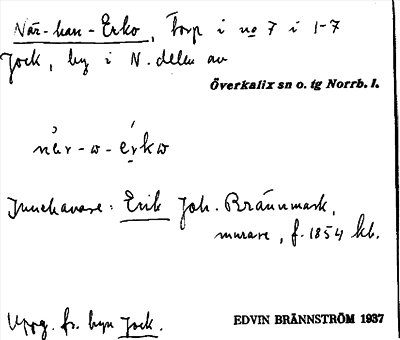 När-han-Erko, Torp i no 7 i 1-7
Jock, by i N. delen av
Överkalix sn o. tg Norrb. l.
nær-w- erkw
Innehavare: Erik Joh. Brännmark,
murare, f. 1854 kb.
Uppg. fr. byn Jock.
EDVIN BRÄNNSTRÖM 1937